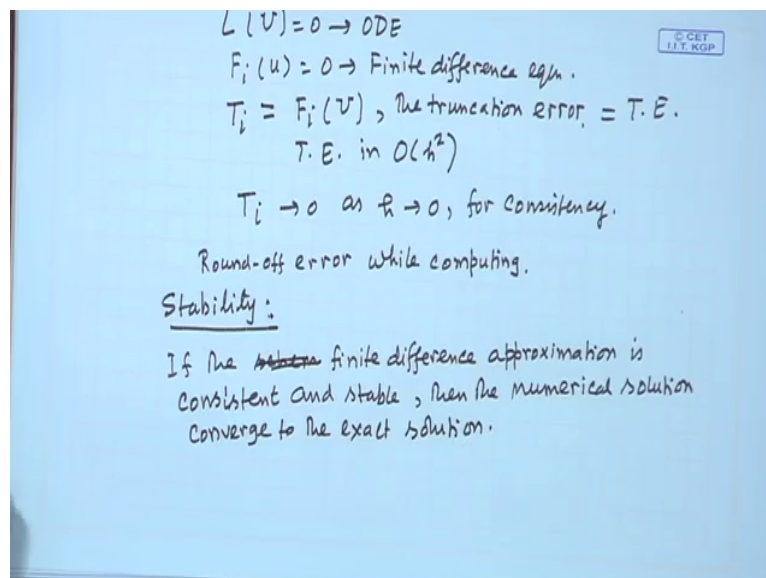 L(V) = 0 → ODE
© CET
I.I.T. KGP
F_i(u) = 0 → Finite difference eqn.
T_i = F_i(V), The truncation error. = T.E.
T.E. in O(h²)
T_i → 0 as h → 0, for consistency.
Round-off error while computing.
Stability:
If the finite difference approximation is
consistent and stable, then the numerical solution
converge to the exact solution.